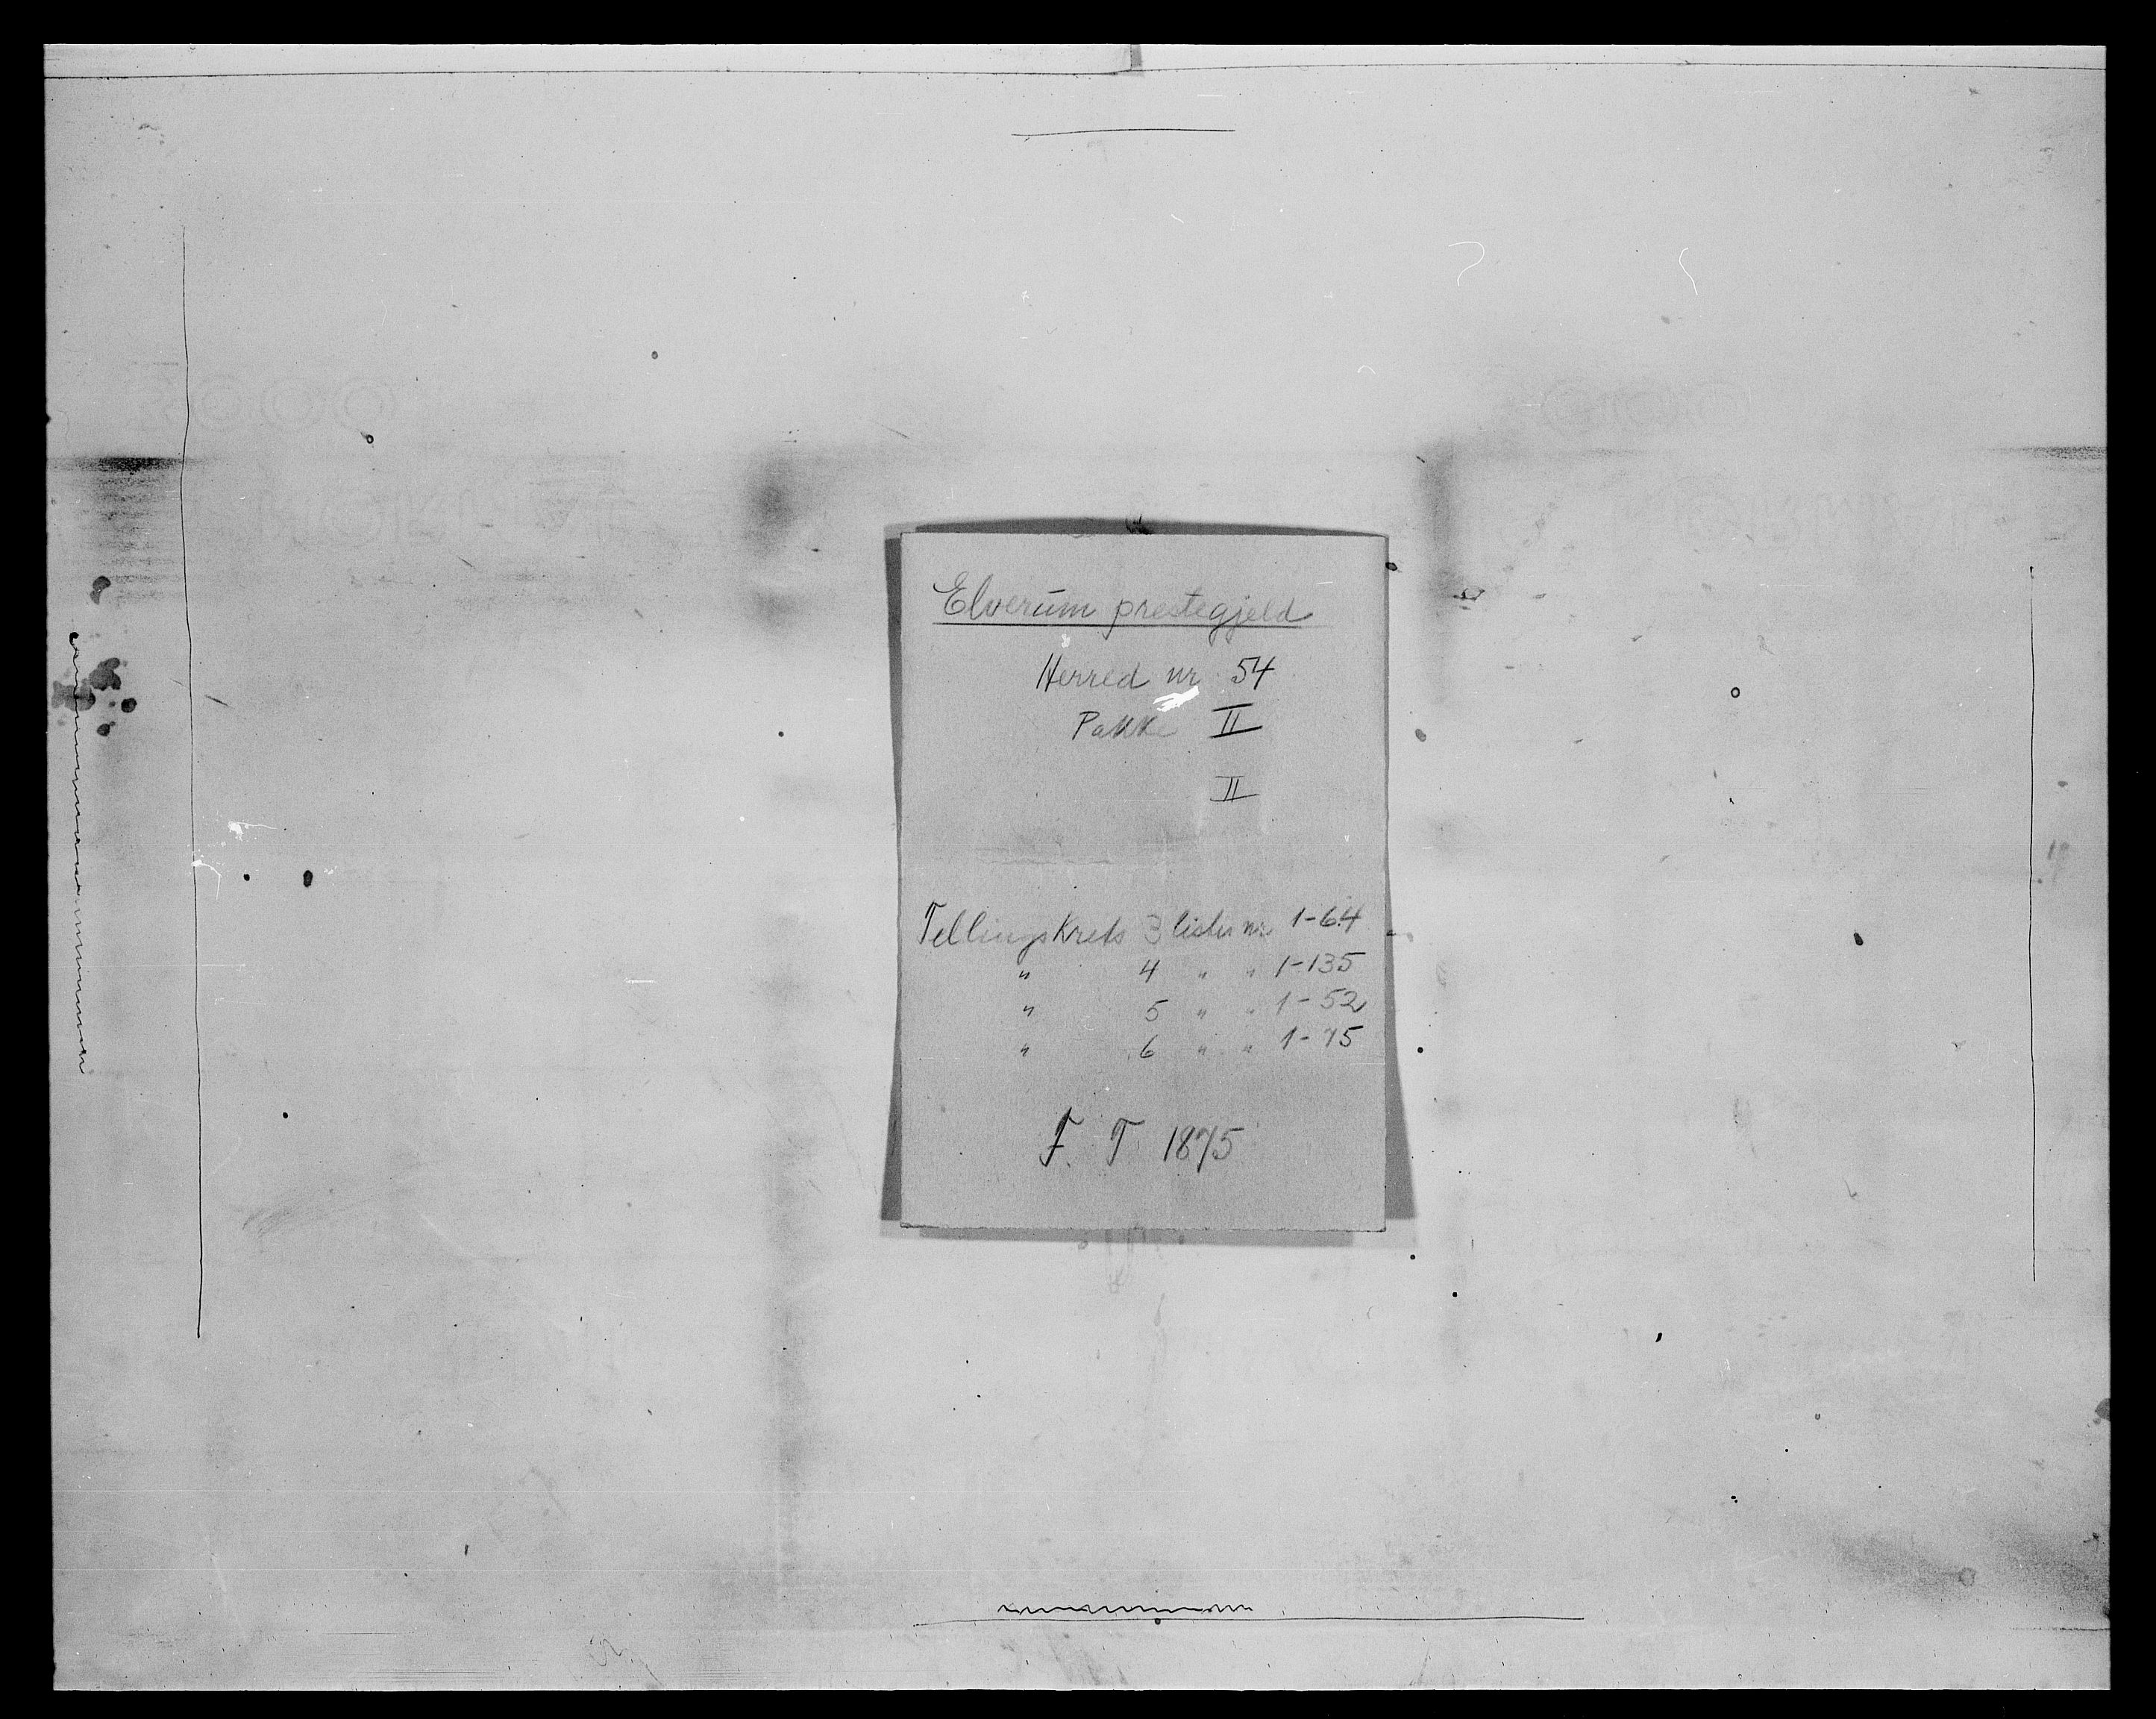 Elverum prestegjeld
Herred nr 54
Pakke II
II
Tellingskrets 3 lister nr 1-64
" 4 " " 1-135
" 5 " " 1-52
" 6 " " 1-75
F. T. 1875